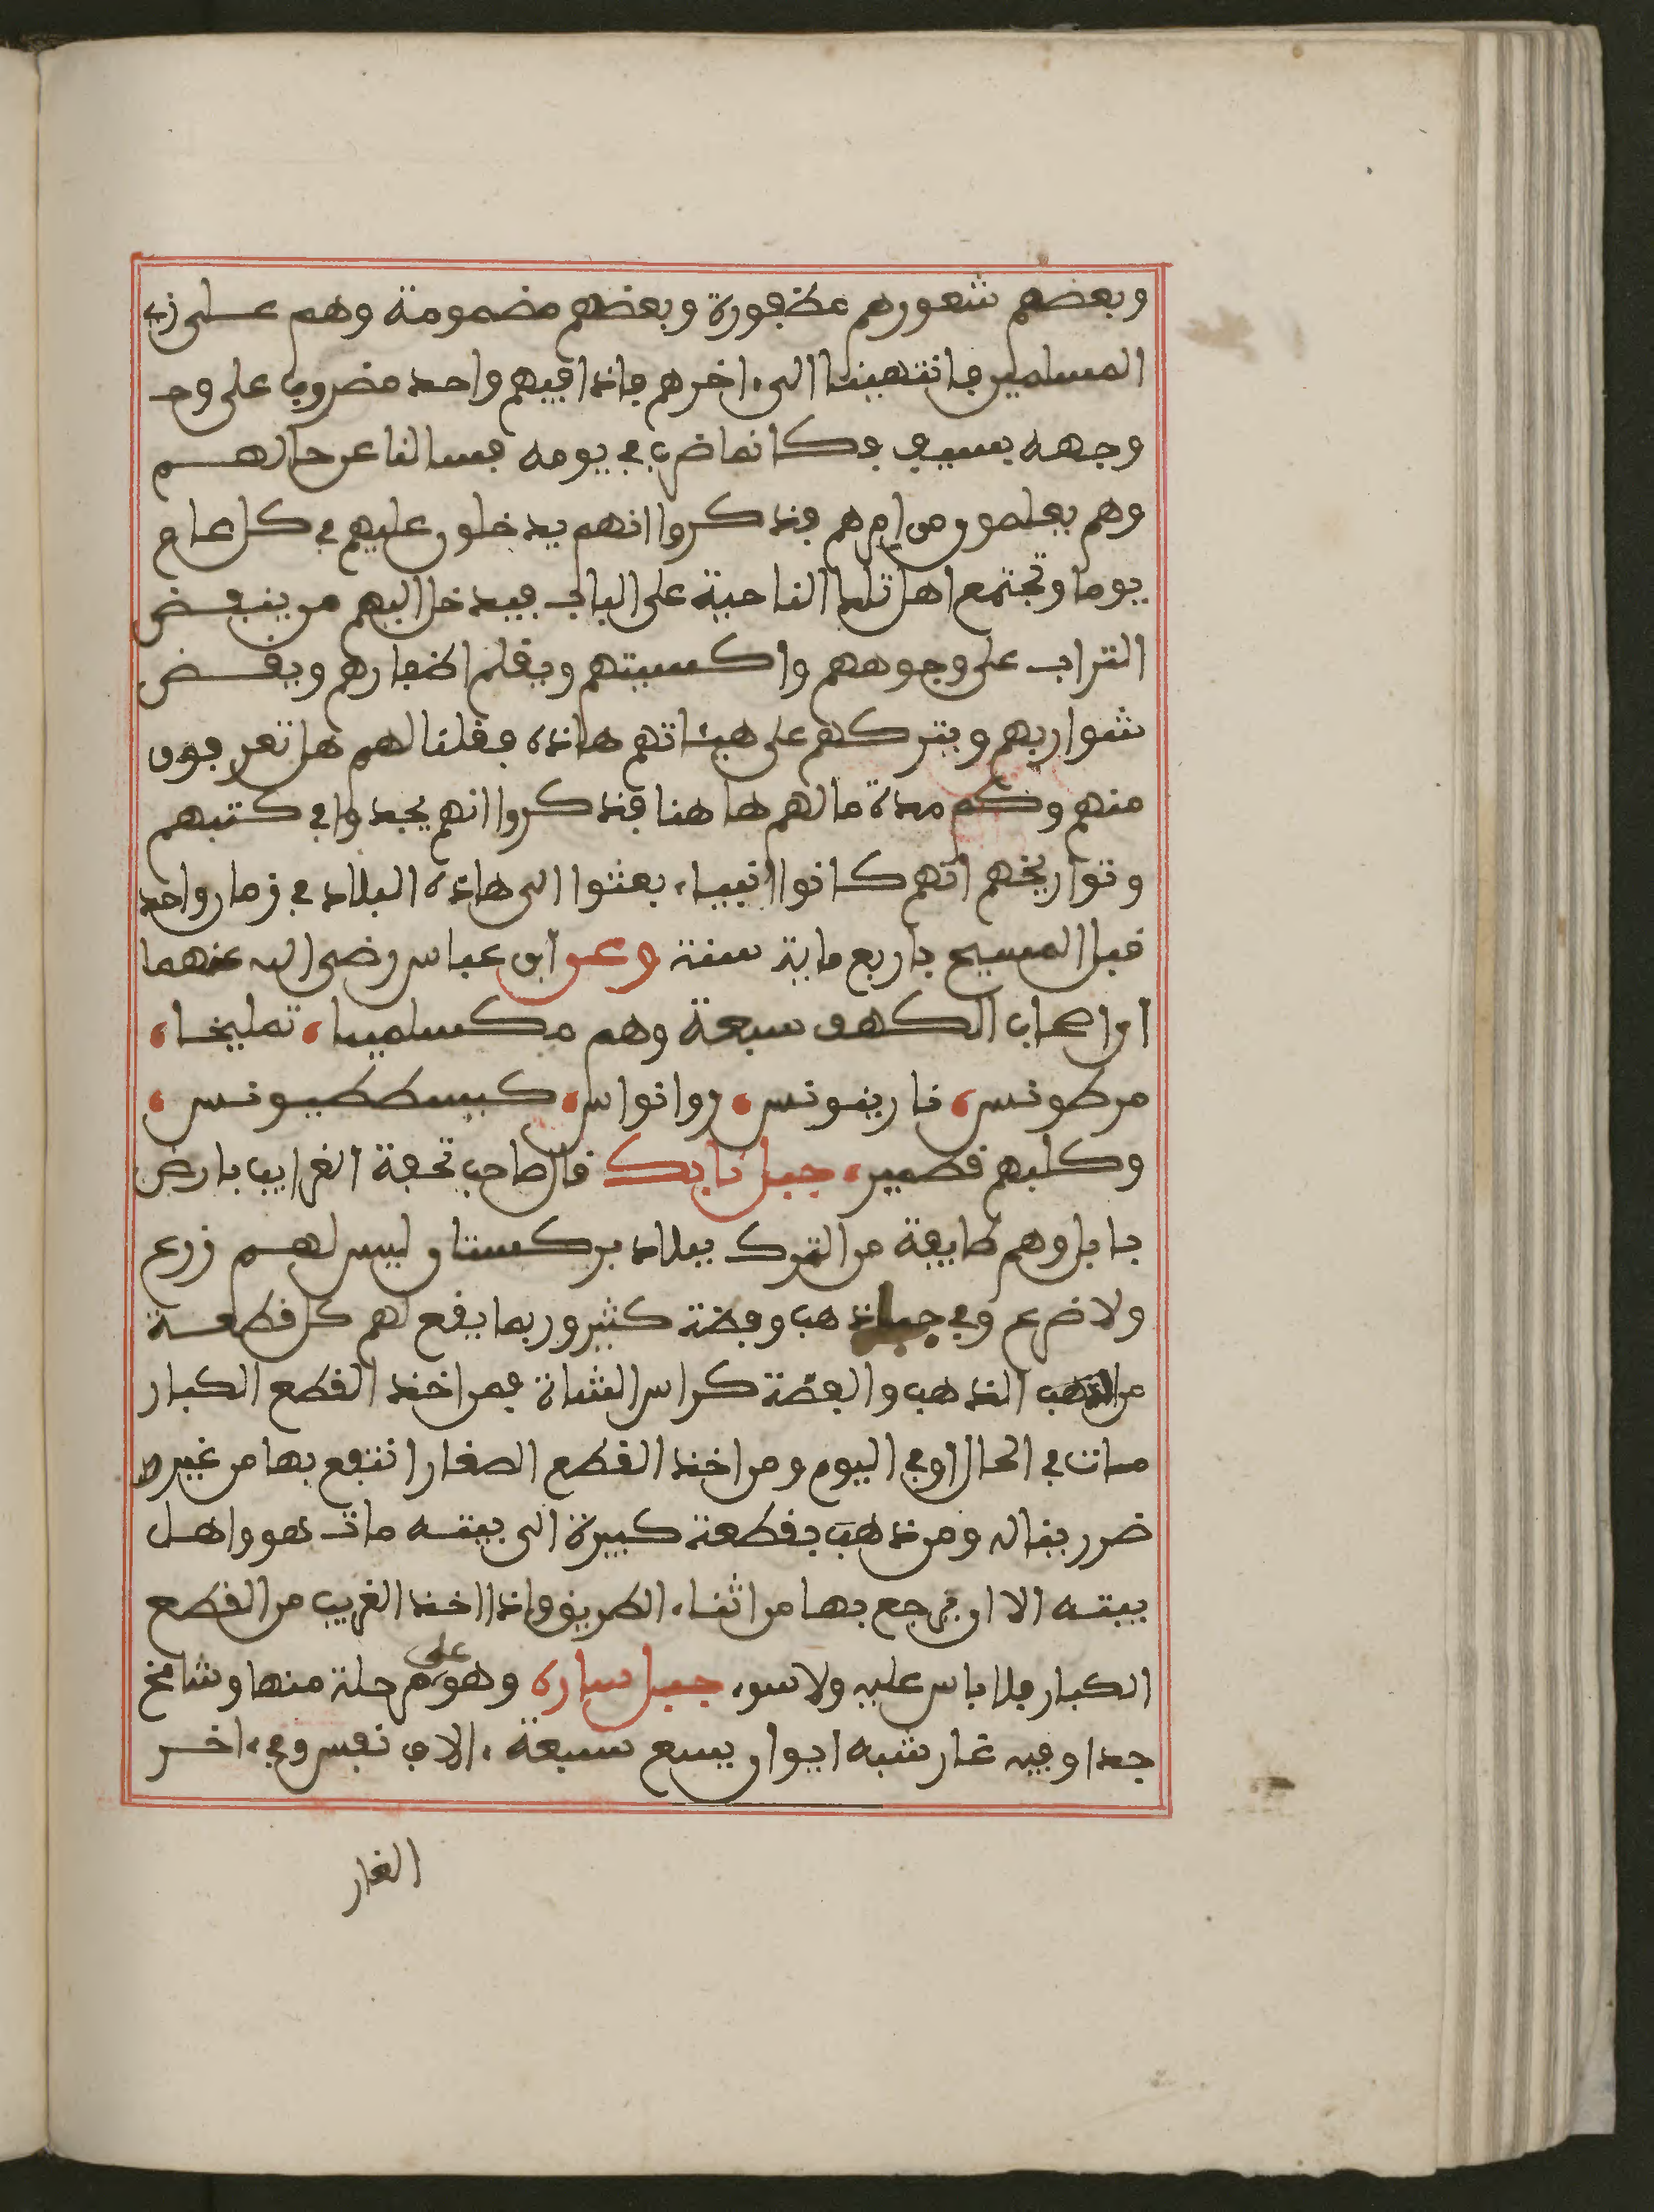 وبعضهم شعورهم مظفورة وبعضهم مضمومة وهم على زي
المسلمين فانتهينا الى ءاخرهم فاذا فيهم واحد مضروب على وجـ
وجهه بسيف فكانما ضرب في يومه فسالنا عن حالهم
وهم يعلمون من امرهم فذكروا انهم يدخلون عليهم في كل عام
يوما وتجتمع اهل تلك الناحية على الباب فيدخل اليهم من ينفض
التراب على وجوههم واكسيتهم ويقلم اظفارهم ويقض
شواربهم ويتركهم على هيئاتهم هاذه فقلنا لهم هل تعرفون
منهم وكم مدة ما لهم هاهنا فذكروا انهم يجدوا في كتبهم
وتواريخهم انهم كانوا انبياء بعثوا الى هاذه البلاد في زمان واحد
قبل المسيح باربع ماية سنة وعن ابن عباس رضى الله عنهما
ان اصحاب الكهف سبعة وهم مكسلمينا، تمليخا،
مرطونس، نارينونس، روانواس، كبسططيونس،
وكلبهم قطمير، جبل نابك قال صاحب تحفة الغرايب بارض
بابل وهم طايفة من الترك ببلاد بركستان ليس لهم زرع
ولا ضرع وفي جبل ذهب وفضة كثير وربما يقع لهم كل قطعة
من الذهب الذهب والفضة كراس الشاة فمن اخذ القطع الكبار
مات في الحال او في اليوم ومن اخذ القطع الصغار انتفع بها من غير
ضرر يناله ومن ذهب بقطعة كبيرة الى بيته مات هو واهل
بيته الا ان يرجع بها من اثناء الطريق واذا اخذ الغريب من القطع
الكبار فلا باس عليه ولا سوء جبل ساره وهو على مرحلة منها وشامخ
جدا وفيه غار شبه ايوان يسع سبعة ءالاف نفس وفي ءاخر
الغار